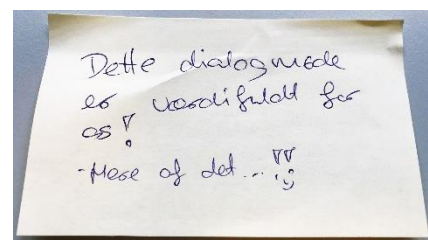 Dette dialogmøde
er værdifuldt for
os!
- Mere af det...!! :)